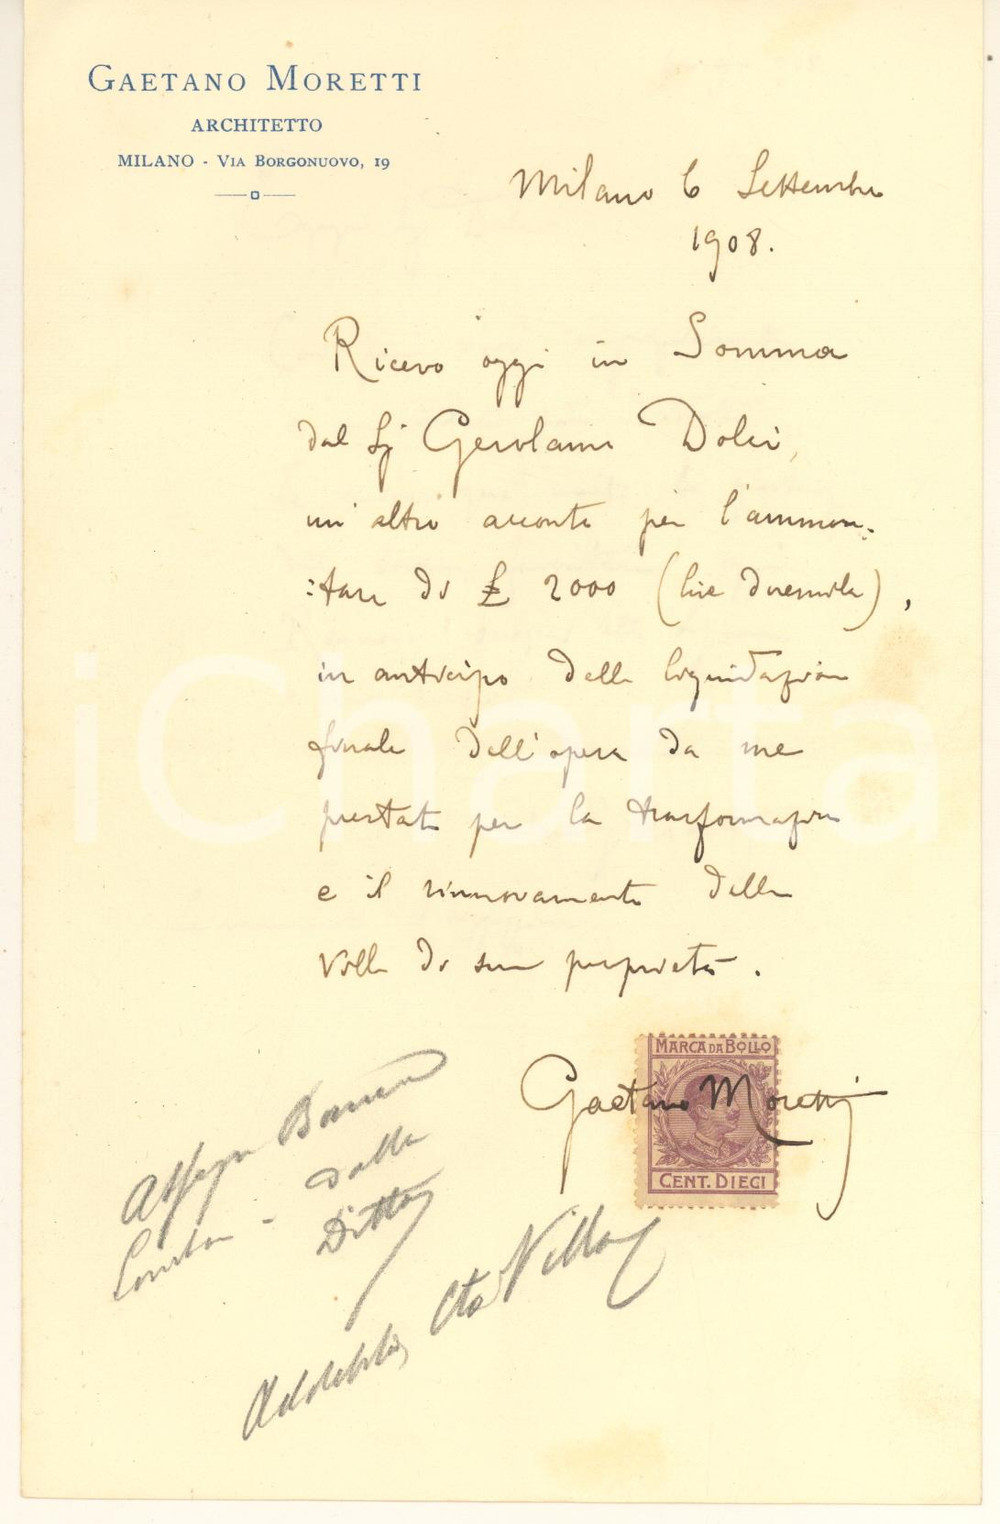 GAETANO MORETTI
ARCHITETTO
MILANO - VIA BORGONUOVO, 19
Milano 6 Settembre
1908.
Ricevo oggi in Somma
dal Sg Gerolamo Dolci,
un'altro acconto per l'ammon-
:tare di £ 2000 (lire duemila),
in anticipo della liquidazione
finale dell'opera da me
prestata per la trasformazione
e il rinnovamento della
Villa di sua proprietà.
MARCA DA BOLLO
Gaetano Moretti
CENT. DIECI
Assegno Banca
dalla
Ditta
Addebito, Cto Villa
iCharta